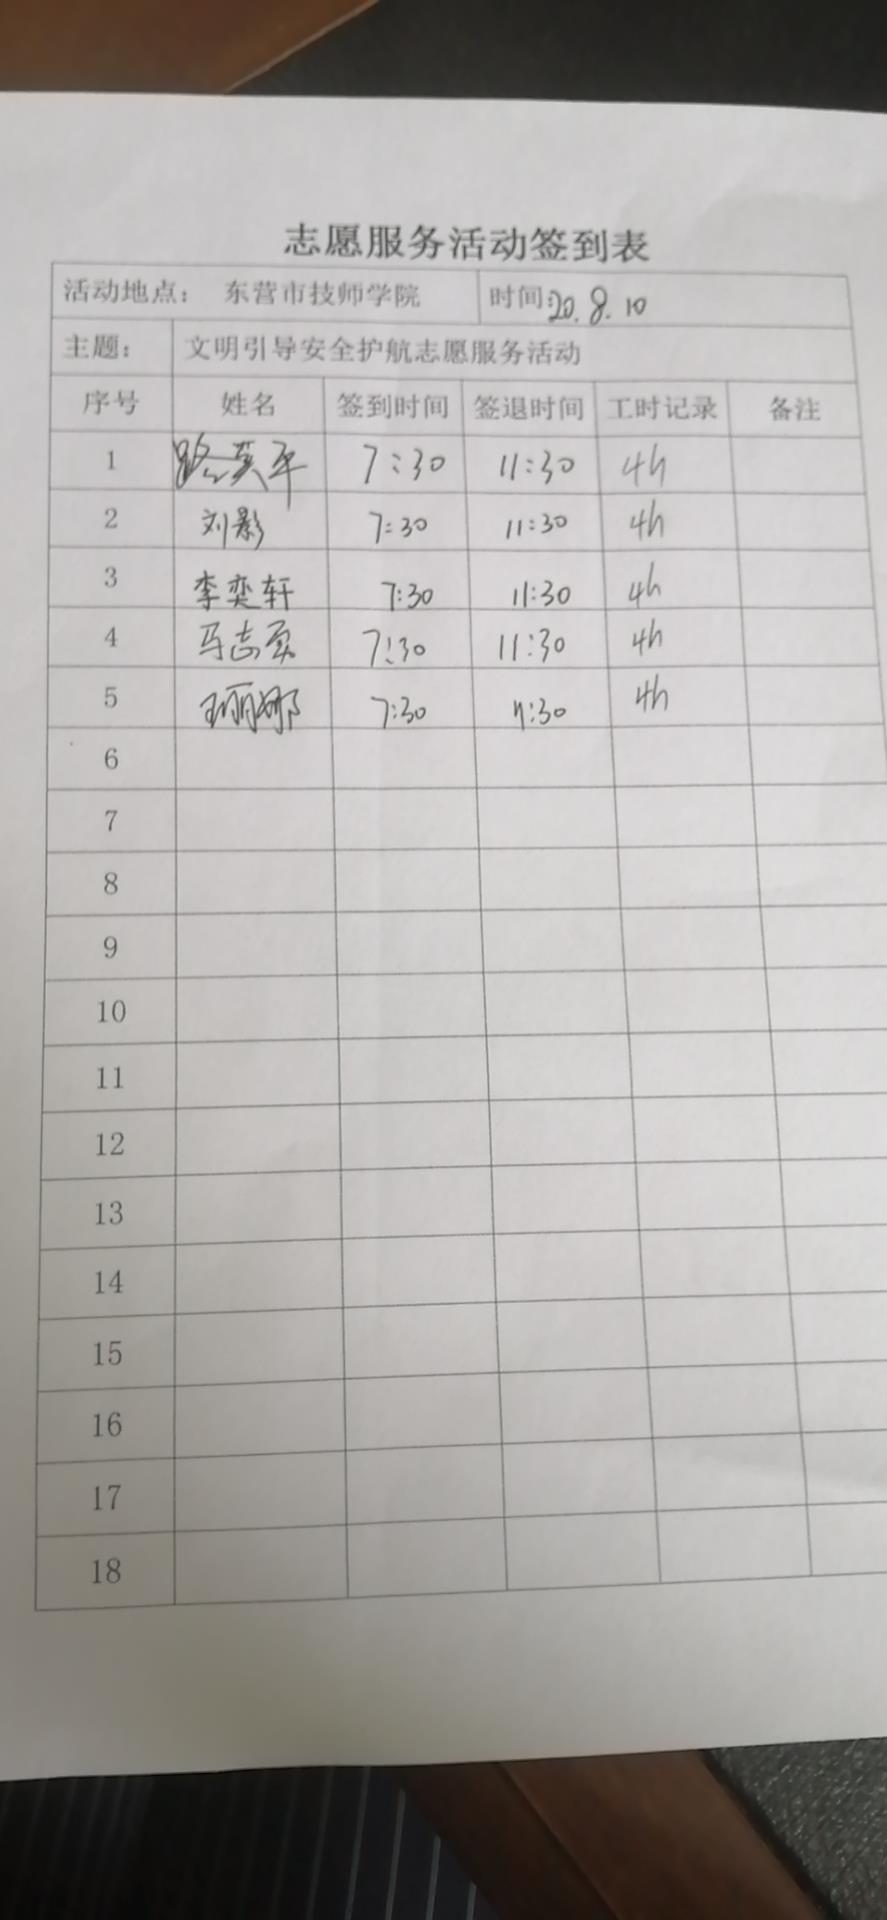 志愿服务活动签到表
活动地点： 东营市技师学院 时间:20.8.10
主题： 文明引导安全护航志愿服务活动
序号 姓名 签到时间 签退时间 工时记录 备注
1 路英平 7:30 11:30 4h
2 刘影 7:30 11:30 4h
3 李奕轩 7:30 11:30 4h
4 马志 7:30 11:30 4h
5 王丽娜 7:30 11:30 4h
6
7
8
9
10
11
12
13
14
15
16
17
18